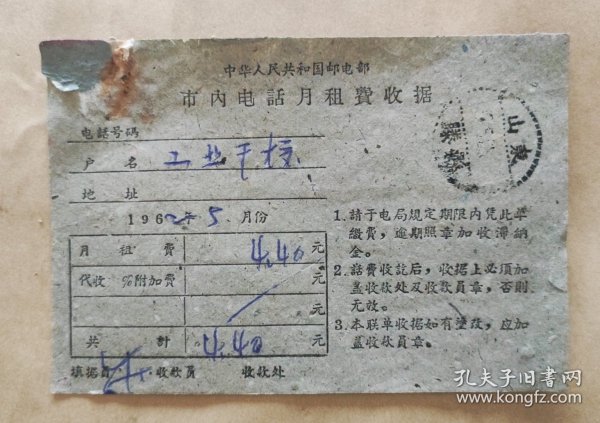 中华人民共和国邮电部
市內电話月租費收据
电話号碼
户名 工业干校
地址
1962年5月份
月租費 4.40元
代收 %附加費 元
元
共計 4.40元
填据員 收款員 收款处
1.請于电局規定期限內凭此单
繳費，逾期照章加收滞納
金。
2.話費收訖后，收据上必須加
盖收款处及收款員章，否則
无效。
3.本联单收据如有塗改，应加
盖收款員章。
山东
孔夫子旧书网
www.kongfz.com